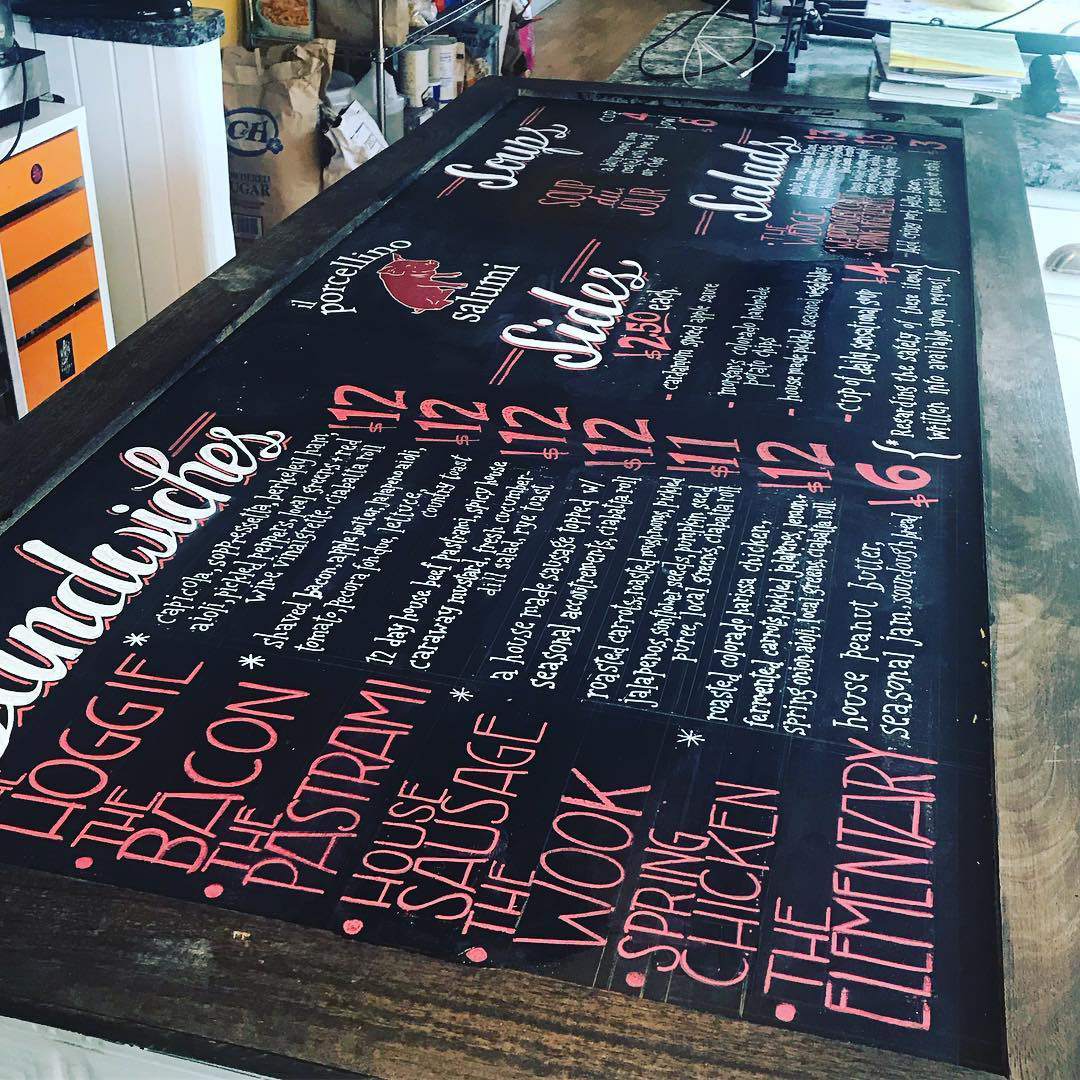 Sandwiches
HOGGIE *
capicola, sopressetta, berkeley ham,
aioli, pickled peppers, leaf greens + red
wine vinaigrette, ciabatta roll
$12
• THE
BACON *
shaved bacon, apple butter, jalapeno aioli,
tomato, Recora fondue, lettuce,
country toast
$12
• THE
PASTRAMI
12 day house beef pastrami, spicy house
caraway mustard, fresh cucumber-
dill salad, rye toast
$12
• HOUSE
SAUSAGE *
a house made sausage topped w/
seasonal accoutrements, ciabatta roll
$12
• THE
WOOK
roasted carrots, toasted mushrooms, pickled
jalapenos, sunflower seed & pumpkin seed
puree, local greens, ciabatta roll
$11
• SPRING
CHICKEN *
roasted colorado harissa chicken,
fermented carrots, pickled radishes, lemon +
spring onion aioli, local greens, ciabatta roll
$12
• THE
ELEMENTARY
house peanut butter,
seasonal jam, sourdough bread
$6
il
porcellino
salumi
Soups
SOUP
del
JOUR
CUP 4
BOWL 8
Sides
$2.50 each
- cardamom spiced apple sauce
- morgan's colorado handmade
potato chips
- house made pickled seasonal vegetables
- cup of daily seasonal soup $4
{* Regarding the safety of these items,
written info available upon request}
Salads
THE
WEDGE
13
13
3
SUGAR